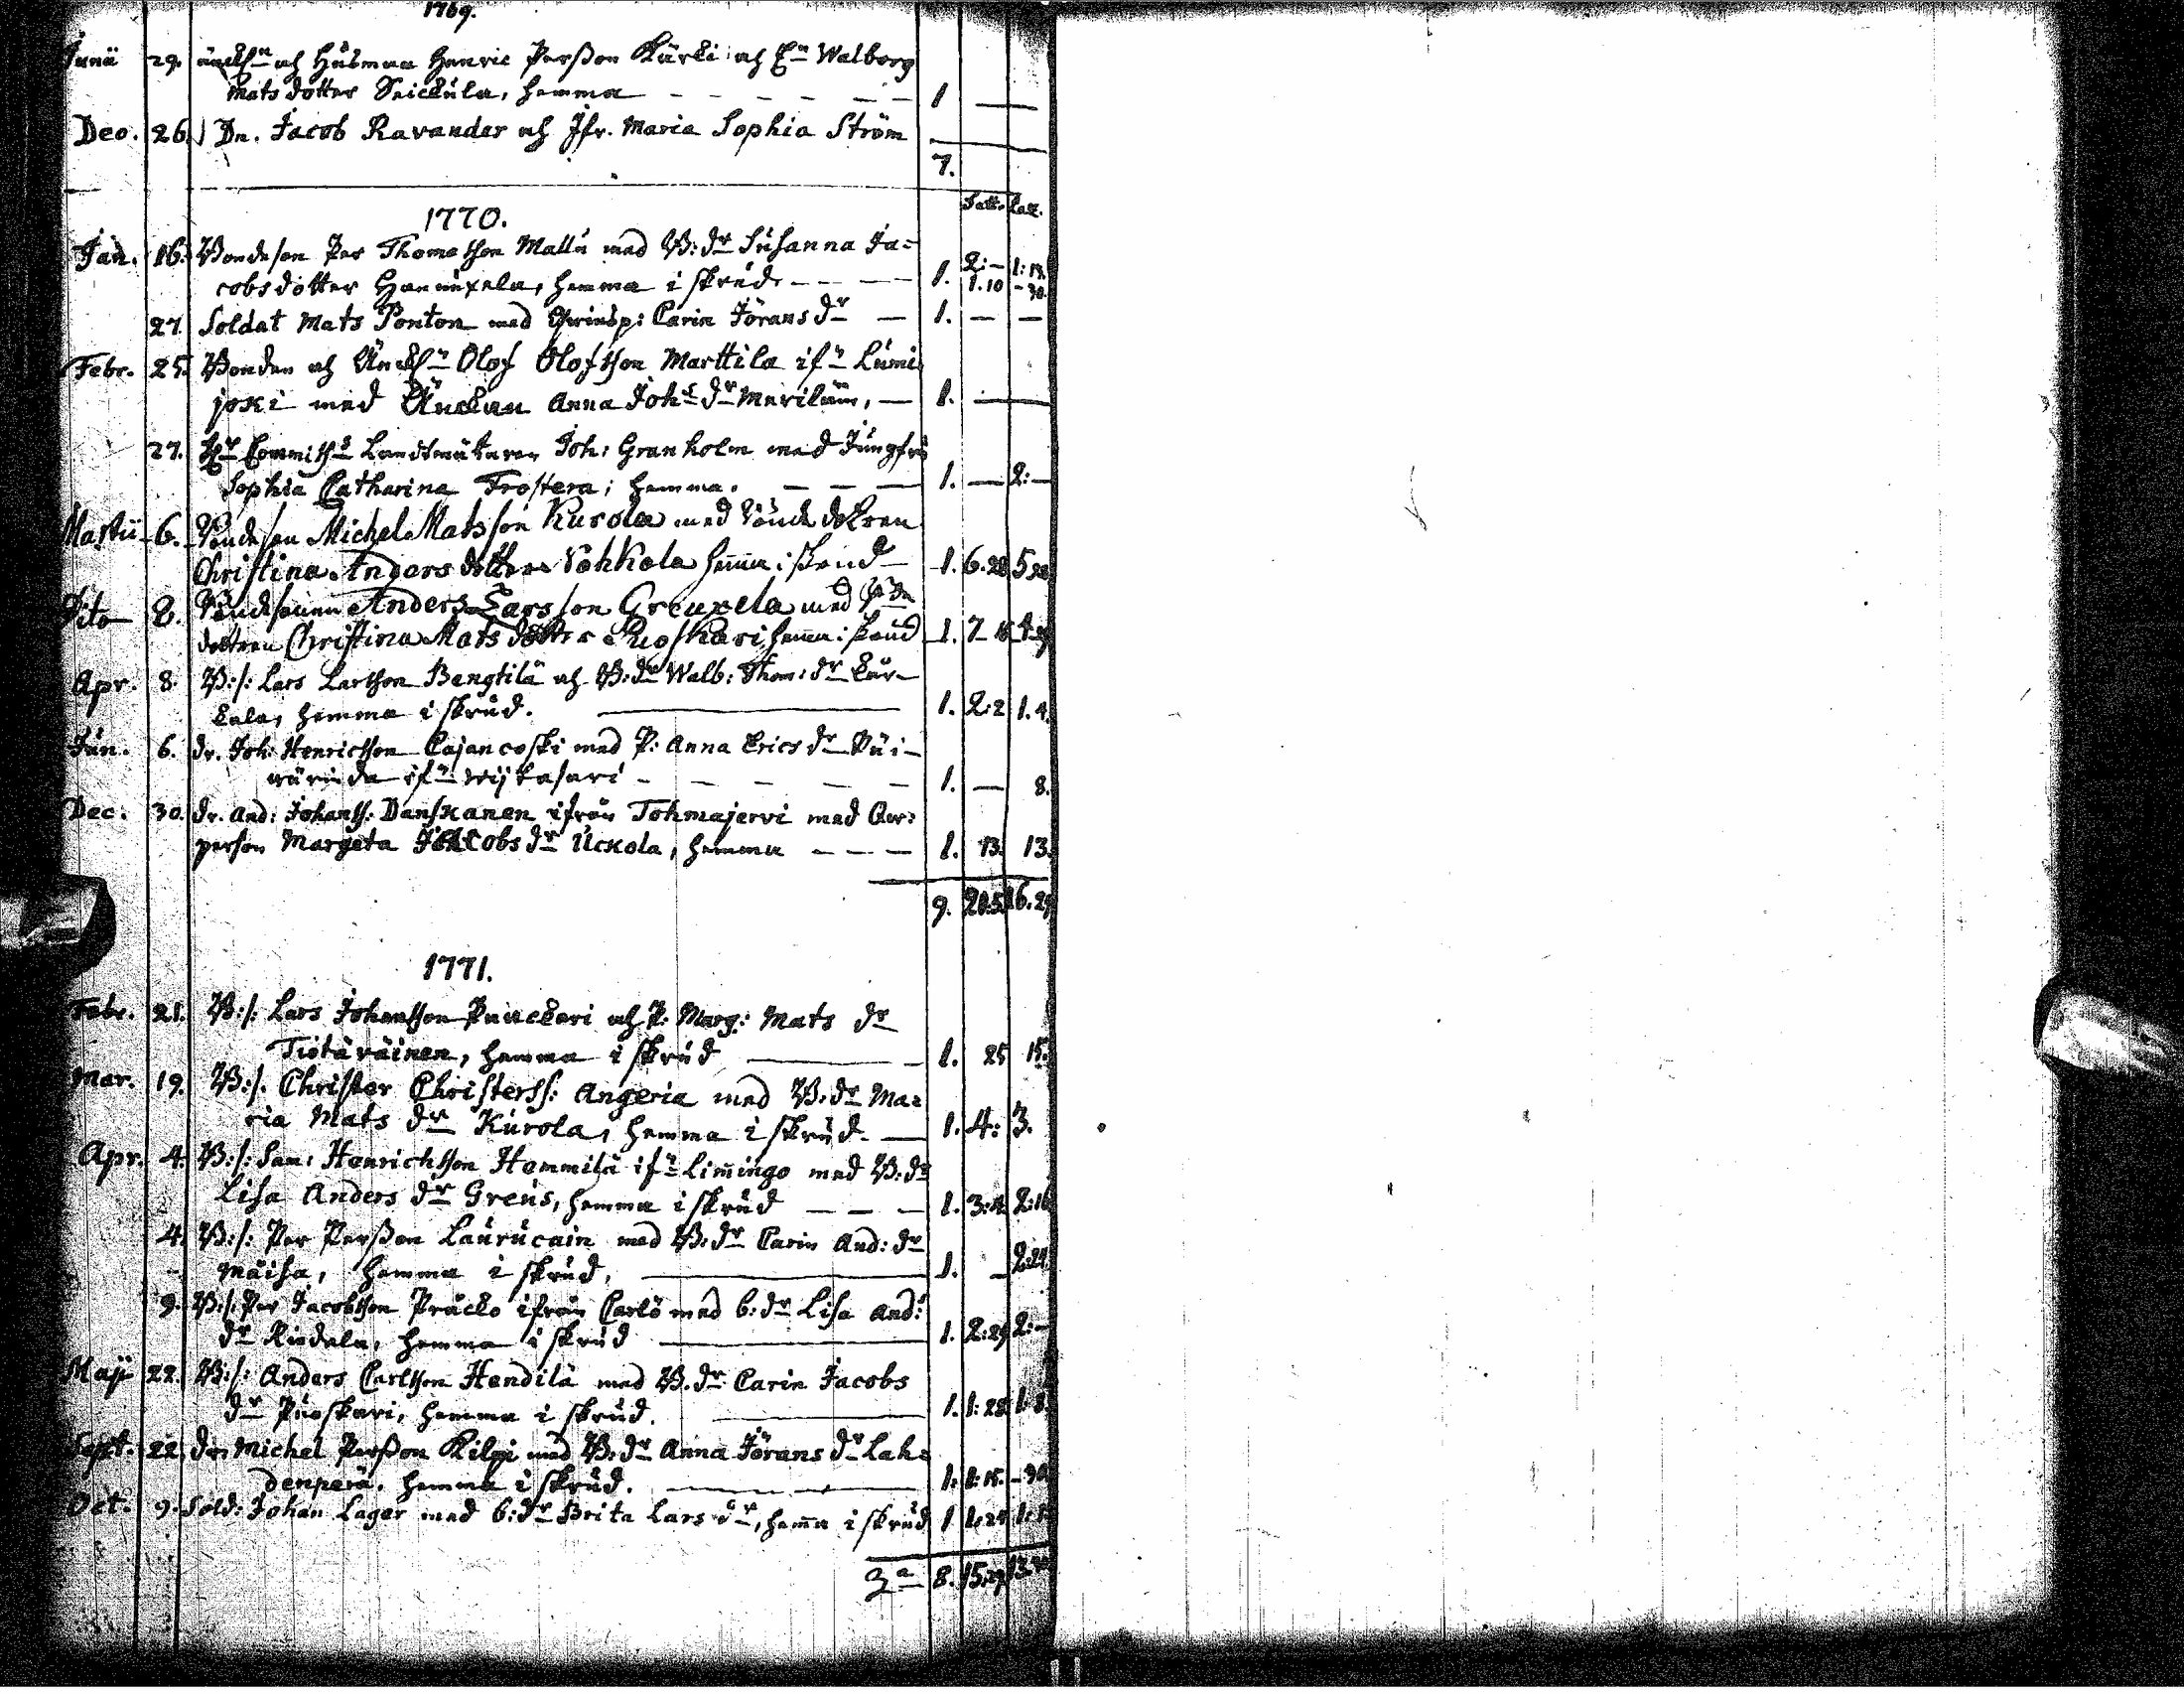 1769.
Junii 29. änckn och Husman Henric Perßon Kärki och En Walborg
Matsdotter Seickula, hemma — — — — — — 1 —
Dec. 26. Dn. Jacob Ravander och Jfr. Maria Sophia Ström
7.
1770.
Jan. 16. Bondeson Per Thomasson Mallu med B: dr Susanna Ja=
cobsdotter Hannuxela, hemma i skrud. — — — 1. 2:— 1:
1.10
27. Soldat Mats Ponton med Carin Jörans dr — 1. — —
Febr. 25. Bonden och Änckn Olof Olofsson Marttila ifn Lumi
joki med Änckan Anna Johs dr Mariläin, — 1. —
27. Hr Commiss Landtmätaren Joh: Granholm med Jungfru
Sophia Catharina Frostera; hemma. — — — 1. — 2:—
Martii 6. Bondeson Michel Matsson Kurola med bonde dottren
Christina Anders dotter Vohkola hemma i skrud — 1. 6.28 5
Dito 8. Bondesonen Anders Larsson Greuxela med
dottren Christina Mats dotter Ruoskari hemma i skrud 1. 7
Apr. 8. B:s: Lars Larsson Bengtilä och B: dr Walb: Thom: dr Kär-
kala, hemma i skrud. — 1. 2:2 1.4.
Jun. 6. dr. Joh: Henricsson Cajancoski med P: Anna Erics dr Päi-
wärinda ifn Wijkasari — — — — — 1. — 8.
Dec. 30. dr. And: Johanss: Danskanen ifrån Tohmajervi med Qwi:
person Margeta Jacobs dr Uckola, hemma — — — 1. 13. 13.
9. 16.29
1771.
Febr. 21. B:s: Lars Johansson Puuckari och P: Marg: Mats dr
Tiotäväinen, hemma i skrud — 1. 25 15.
Mar. 19. B:s: Christer Christerss: Angeria med B: dr Ma=
ria Mats dr Kurola, hemma i skrud. — 1. 4: 3.
Apr. 4. B:s: Sam: Henrichsson Hemmilä ifn Limingo med B: dr
Lisa Anders dr Greus, hemma i skrud — — — 1. 3:4 2:16
4. B:s: Per Perßon Laurucain med B: dr Carin And: dr
Maisa, hemma i skrud, — 1. —
9. B:s: Per Jacobsson Präcko ifrån Carlö med b: dr Lisa And:
dr Rindala, hemma i skrud — 1. 2:29 2:—
Maji 22. B:s: Anders Carlsson Hendilä med B. dr Carin Jacobs
dr Puoskari, hemma i skrud. — 1. 1:28 1:8.
Sept. 22. dr. Michel Perßon Kilpi med B: dr Anna Jörans dr Lah=
denperä. hemma i skrud. — 1: 1:15.
Oct. 9. Sold: Johan Lager med b: dr Brita Lars dr, hemma i skrud 1
8. 15